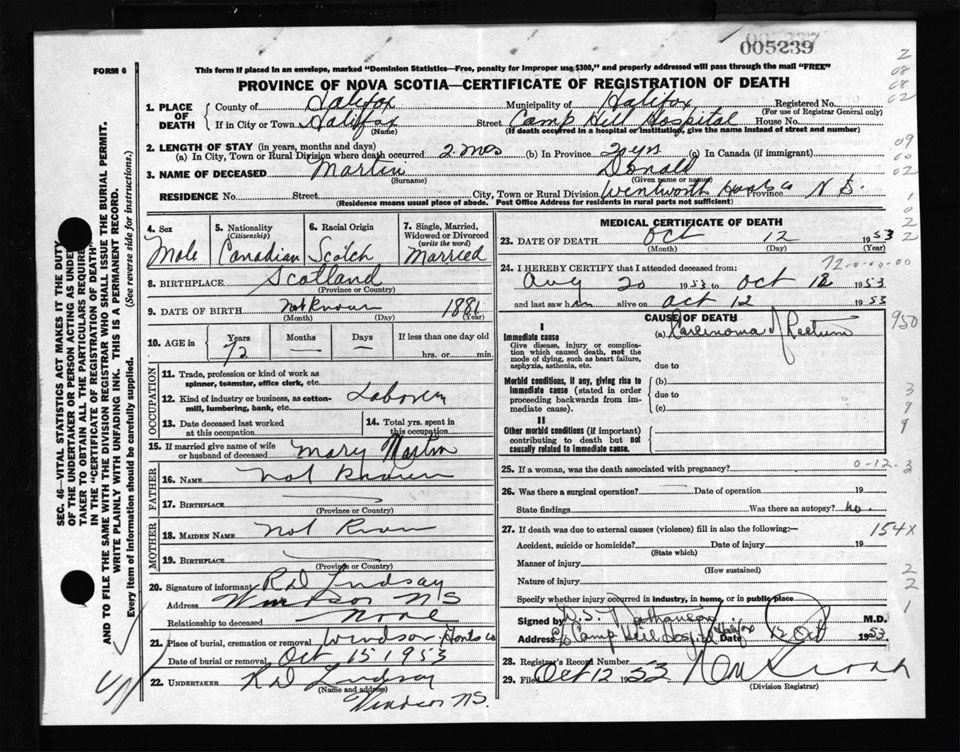 005239
FORM 6
This form if placed in an envelope, marked "Dominion Statistics—Free, penalty for improper use $300," and properly addressed will pass through the mail "FREE"
PROVINCE OF NOVA SCOTIA—CERTIFICATE OF REGISTRATION OF DEATH
1. PLACE OF DEATH County of Halifax Municipality of Halifax Registered No.
(For use of Registrar General only)
If in City or Town Halifax Street Camp Hill Hospital House No.
(Name) (If death occurred in a hospital or institution, give the name instead of street and number)
2. LENGTH OF STAY (in years, months and days)
(a) In City, Town or Rural Division where death occurred 2 mos (b) In Province 20 yrs (c) In Canada (if immigrant)
3. NAME OF DECEASED Martin Donald
(Surname) (Given name or names)
RESIDENCE No. Street City, Town or Rural Division Wentworth Hants Co Province N S.
(Residence means usual place of abode. Post Office Address for residents in rural parts not sufficient)
4. Sex
Male
5. Nationality
(Citizenship)
Canadian
6. Racial Origin
Scotch
7. Single, Married, Widowed or Divorced
(write the word)
Married
8. BIRTHPLACE Scotland
(Province or Country)
9. DATE OF BIRTH Not Known 1881
(Month) (Day) (Year)
10. AGE in Years Months Days If less than one day old
72 — — hrs. or min.
OCCUPATION
11. Trade, profession or kind of work as spinner, teamster, office clerk, etc.
12. Kind of industry or business, as cotton-mill, lumbering, bank, etc. Laborer
13. Date deceased last worked at this occupation
14. Total yrs. spent in this occupation
15. If married give name of wife or husband of deceased Mary Martin
FATHER
16. NAME Not Known
17. BIRTHPLACE
(Province or Country)
MOTHER
18. MAIDEN NAME Not Known
19. BIRTHPLACE
(Province or Country)
20. Signature of informant Rd Lindsay
Address Windsor NS
Relationship to deceased None
21. Place of burial, cremation or removal Windsor, Hants Co
Date of burial or removal Oct 15 1953
22. UNDERTAKER Rd Lindsay
(Name and address)
Windsor NS.
MEDICAL CERTIFICATE OF DEATH
23. DATE OF DEATH Oct 12 1953
(Month) (Day) (Year)
24. I HEREBY CERTIFY that I attended deceased from:
Aug 20 1953 to Oct 12 1953
and last saw him alive on Oct 12 1953
CAUSE OF DEATH
I
Immediate cause (a) Carcinoma of Rectum
Give disease, injury or complication which caused death, not the mode of dying, such as heart failure, asphyxia, asthenia, etc.
due to
Morbid conditions, if any, giving rise to immediate cause (stated in order proceeding backwards from immediate cause).
(b)
due to
(c)
II
Other morbid conditions (if important) contributing to death but not causally related to immediate cause.
25. If a woman, was the death associated with pregnancy?
26. Was there a surgical operation? Date of operation 19
State findings Was there an autopsy? no.
27. If death was due to external causes (violence) fill in also the following:—
Accident, suicide or homicide? Date of injury 19
(State which)
Manner of injury
(How sustained)
Nature of injury
Specify whether injury occurred in industry, in home, or in public place
Signed by M.D.
Address C/o Camp Hill Hospital Halifax Date 12 Oct 1953
28. Registrar's Record Number
29. Filed Oct 12 1953
(Division Registrar)
SEC. 46—VITAL STATISTICS ACT MAKES IT THE DUTY
OF THE UNDERTAKER OR PERSON ACTING AS UNDER
TAKER TO OBTAIN ALL THE PARTICULARS REQUIRE
IN THE "CERTIFICATE OF REGISTRATION OF DEATH"
AND TO FILE THE SAME WITH THE DIVISION REGISTRAR WHO SHALL ISSUE THE BURIAL PERMIT.
WRITE PLAINLY WITH UNFADING INK. THIS IS A PERMANENT RECORD.
Every item of information should be carefully supplied. (See reverse side for instructions.)
2
08
08
02
09
60
02
1
0
2
2
950
3
9
9
0-12-3
2
154X
2
2
1